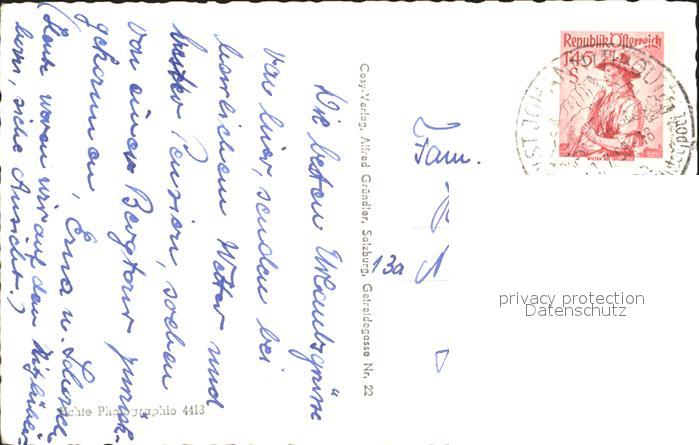 Die besten Urlaubsgrüsse
von hier, senden bei
herrlichem Wetter und
bester Pension, soeben
von einer Bergtour zurück-
gekommen, Erna u.
(Heute waren wir auf dem
horn, siehe Ansicht.)
Echte Photographie 4413
Cosy-Verlag, Alfred Gründler, Salzburg, Getreidegasse Nr. 22
Fam.
13a
Republik Österreich
1.45
S
ST JOHANN
privacy protection
Datenschutz